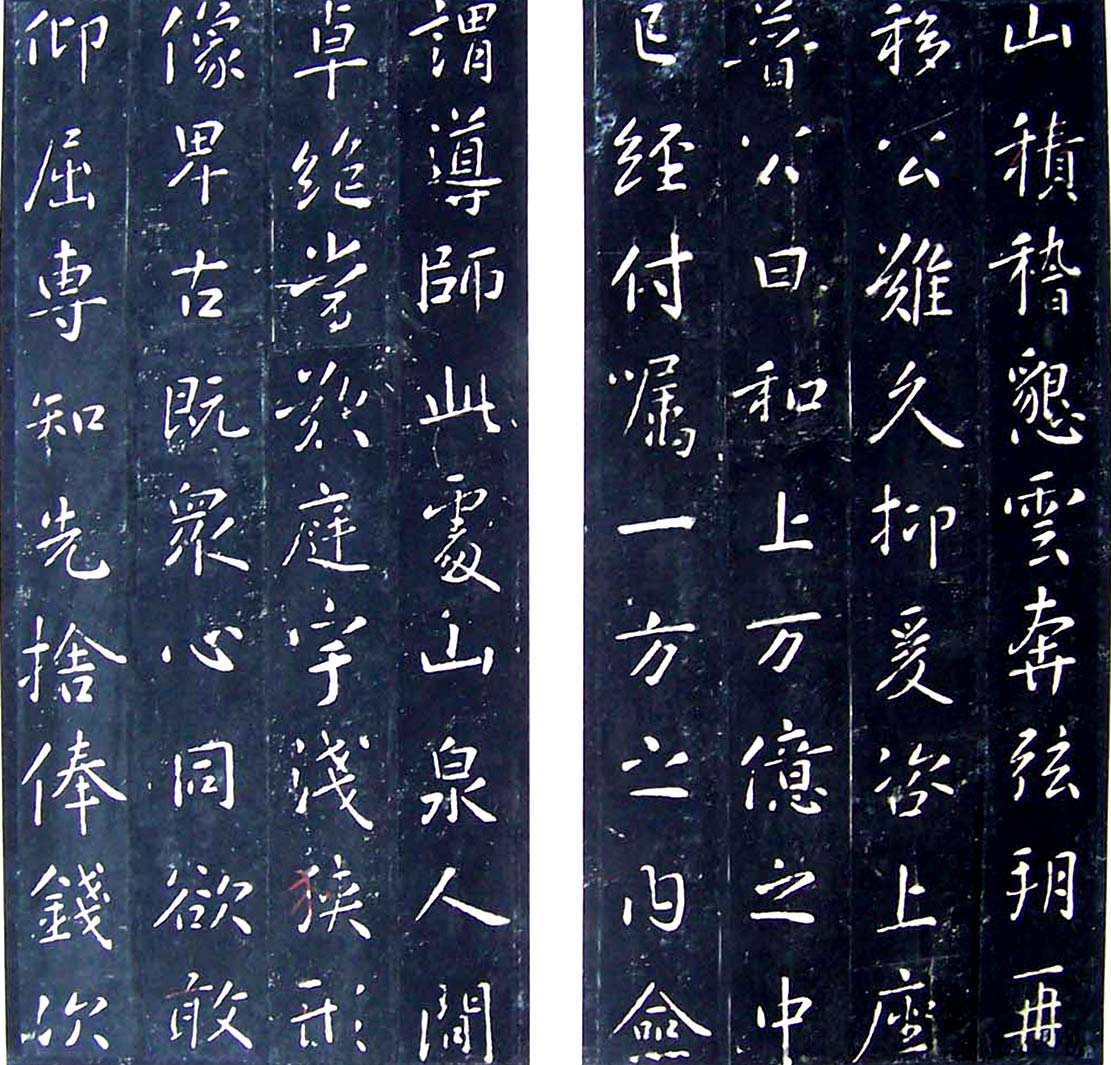 山積稽懇雲奔弦朔再
移公難久抑爰咨上座
普公曰和上万億之中
已經付嘱一方之内僉
謂導師此處山泉人間
卓絶嘗歎庭宇淺狹形
像卑古既衆心同欲敢
仰屈專知先捨俸錢次